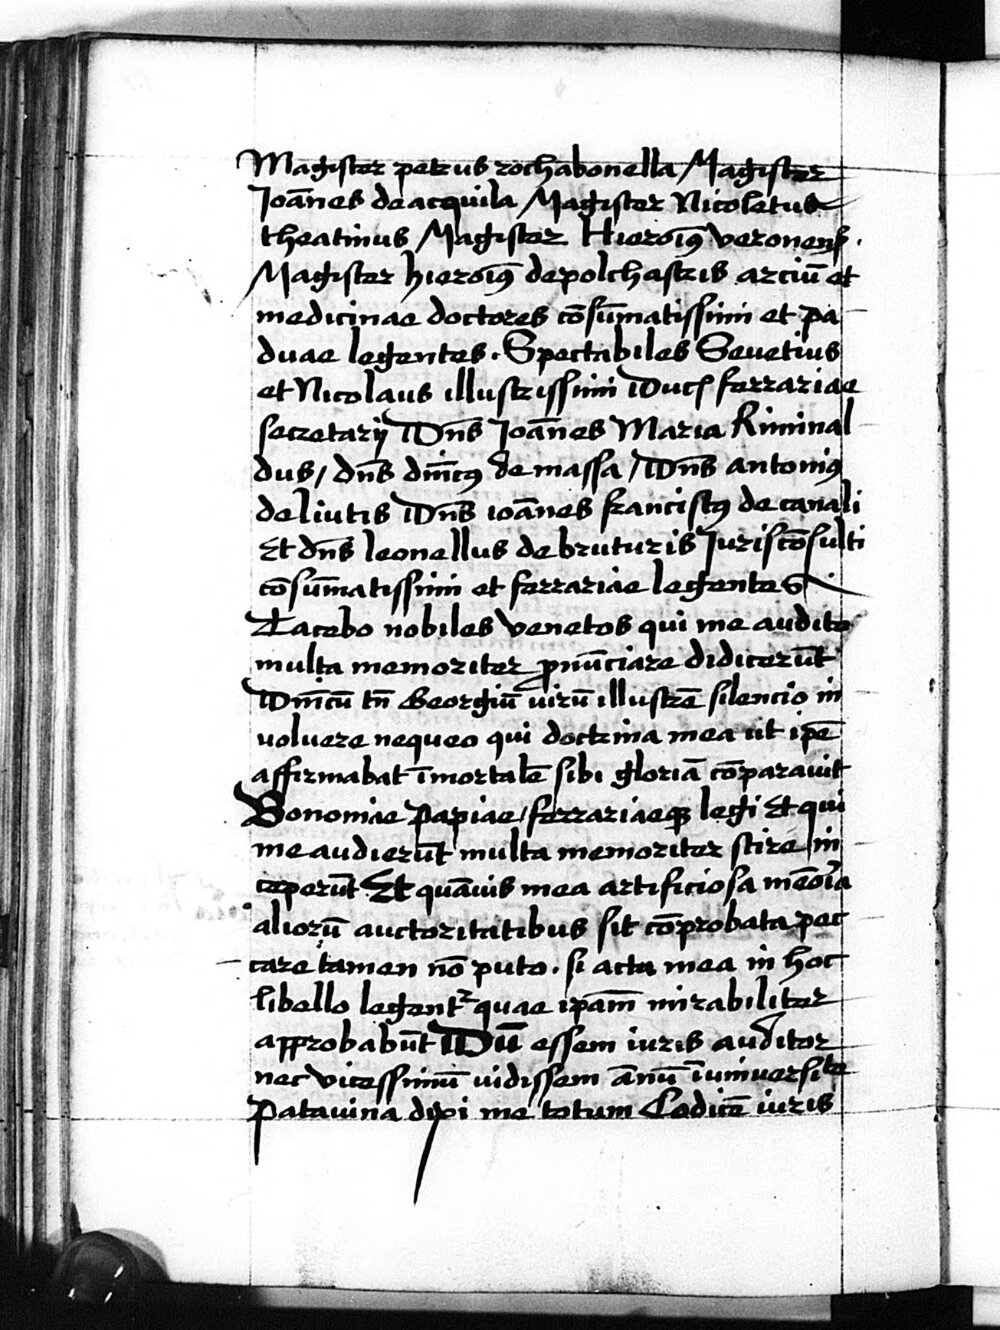 Magister petrus rochabonella Magister
Joānes de acquila Magister Nicoletus
theatinus Magister Hieroīꝰ veronenẜ.
Magister hieroīꝰ de polchastris arciū et
medicinae doctores cōsūmatissimi et pa
duae legentes. Spectabiles Sevetius
et Nicolaus illustrissimi Ducẜ ferrariae
secretarij Dn̄s Joānes Maria Riminal
dus / dn̄s dm̄cꝰ de massa / Dn̄s antoniꝰ
de liutis Dn̄s ioānes franciscꝰ de canali
Et dn̄s leonellus de bruturis Juriscōsulti
cōsūmatissimi et ferrariae legentes
Tacebo nobiles venetos qui me audito
multa memoriter ꝓnūciare didicerūt
Dm̄icū tn̄ Georgiū virū illustrē silencio in
voluere nequeo qui doctrina mea ut ipē
affirmabat īmortalē sibi gloriā cōparavit
Bononiae papiae / ferrariaeqꝫ legi Et qui
me audierūt multa memoriter scire in
ceperūt Et quāvis mea artificiosa mēoīa
aliorū auctoritatibus sit cōprobata pec
care tamen nō puto. si acta mea in hoc
libello legentꝛ quae ipām mirabiliter
approbabūt Dū essem iuris auditor
nec vicessimū vidissem ānū ī universite
Patavina dixi me totum Codicē iuris